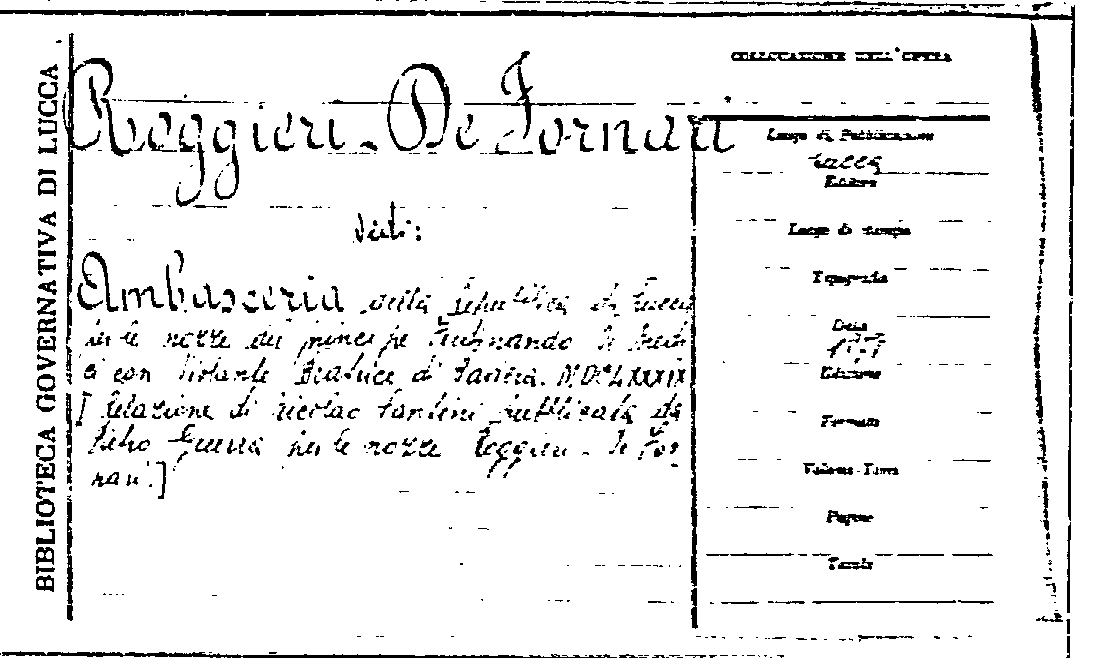 BIBLIOTECA GOVERNATIVA DI LUCCA
COLLOCAZIONE DELL'OPERA
Roggieri - De Fornari
Vedi:
Ambasceria della Repubblica di Lucca
per le nozze del principe Ferdinando de Medi
ci con Violante Beatrice di Baviera. MDCLXXXIX
[Relazione di Nicolao Santini pubblicata da
Pietro Guerra per le nozze Roggieri - De For-
nari.]
Luogo di Pubblicazione
Lucca
Editore
Luogo di stampa
Tipografia
Data
Edizione
Formato
Volume-Tomo
Pagine
Tavole